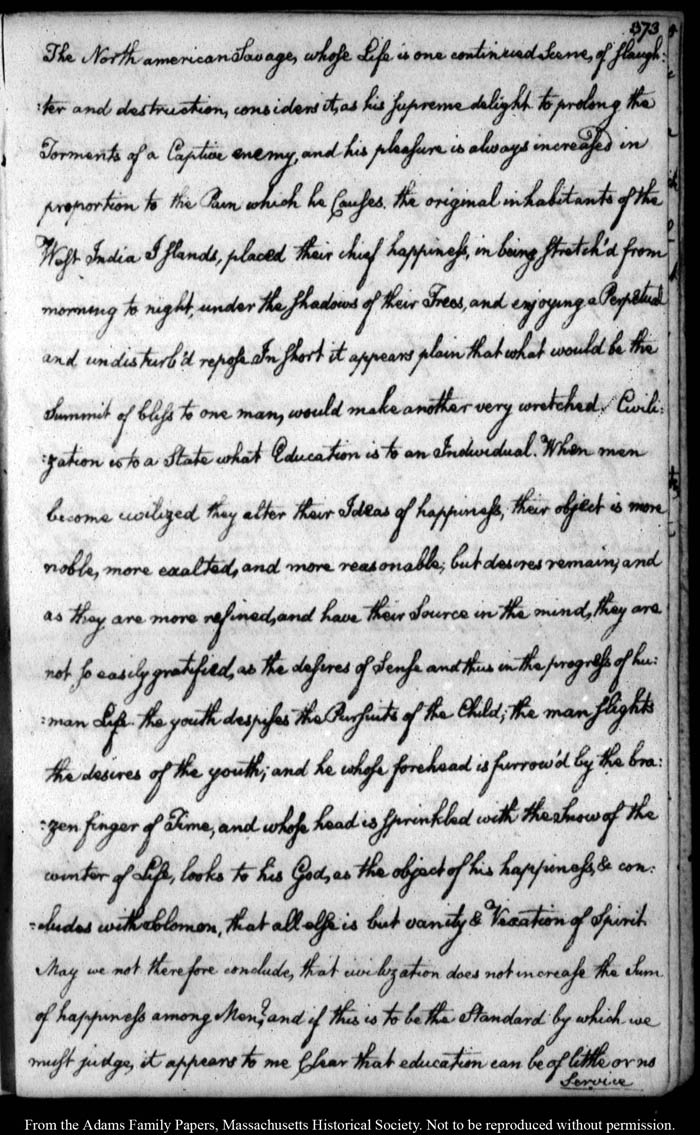 373
The North american Savage, whose Life is one continued Scene, of slaugh:
:ter and destruction, considers it, as his supreme delight to prolong the
Torments of a Captive enemy, and his pleasure is always increased in
proportion to the Pain which he Causes. the original inhabitants of the
West India Islands, placed their chief happiness, in being stretch'd from
morning to night, under the shadows of their Trees, and enjoying a Perpetual
and undisturb'd repose In short it appears plain that what would be the
Summit of bliss to one man, would make another very wretched. Civili:
:zation is to a State what Education is to an Individual. When men
become civilized they alter their Ideas of happiness, their object is more
noble, more exalted, and more reasonable; but desires remain; and
as they are more refined, and have their Source in the mind, they are
not so easily gratified, as the desires of Sense and thus in the progress of hu:
:man Life. the youth despises the Pursuits of the Child; the man slights
the desires of the youth; and he whose forehead is furrow'd by the bra:
:zen finger of Time, and whose head is sprinkled with the Snow of the
winter of Life, looks to his God, as the object of his happiness, & con:
:cludes with Solomon, that all else is but vanity & Vexation of Spirit
May we not therefore conclude, that civilization does not increase the Sum
of happiness among Men? and if this is to be the Standard by which we
must judge, it appears to me Clear that education can be of little or no
Service
From the Adams Family Papers, Massachusetts Historical Society. Not to be reproduced without permission.